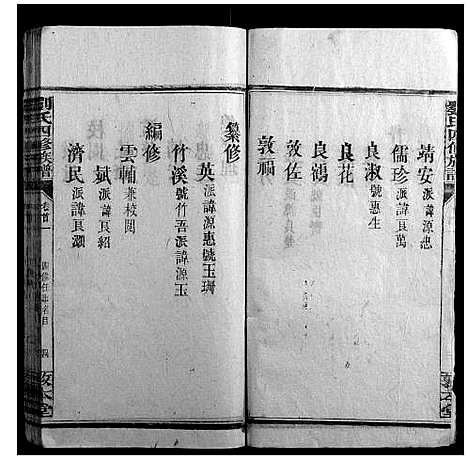 劉氏四修族譜
靖安派諱源忠
儒珍派諱良萬
良淑號惠生
良花
良鴻
敦佐
敦福
纂修
英派諱源惠號玉珊
竹溪號竹吾派諱源玉
編修
雲輔兼校閱
斌派諱良紹
濟民派諱良灝
劉氏四修族譜
卷首
四修任事名目
四
敦本堂